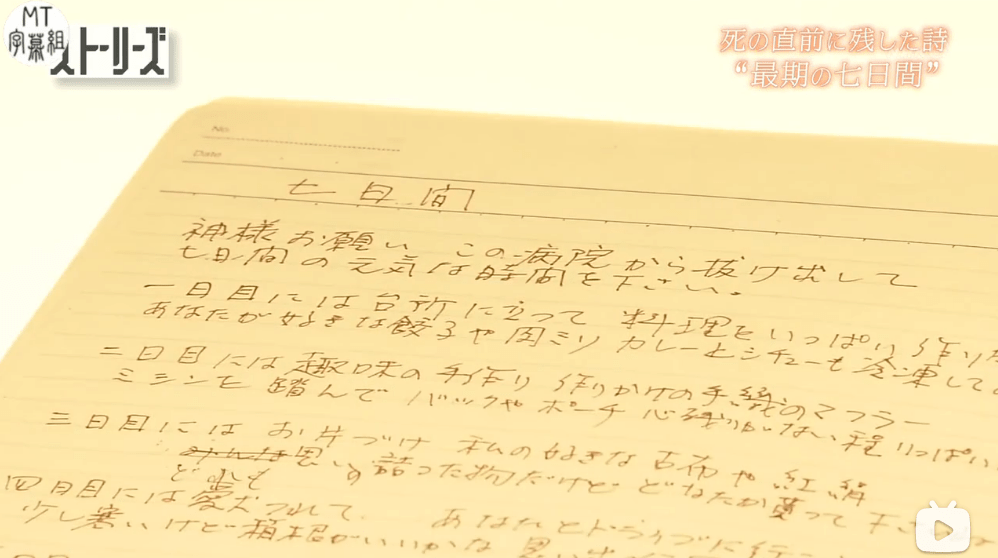 MT
字幕組
ストーリーズ
死の直前に残した詩
“最期の七日間”
No.
Date
七日間
神様お願い この病院から抜け出して
七日間の元気な時間を下さい。
一日目には台所に立って 料理をいっぱい作り
あなたが好きな餃子や肉ミソ カレーとシチューも冷凍して
二日目には趣味の手作り 作りかけの手織のマフラー
ミシンも踏んで バックやポーチ 心残りがない程いっぱい
三日目には お片づけ 私の好きな古布や紅絹
どれも思いの詰った物だけど どなたか貰って下さい
四日目には愛犬つれて あなたとドライブに行
少し寒いけど箱根がいいかな 思い出